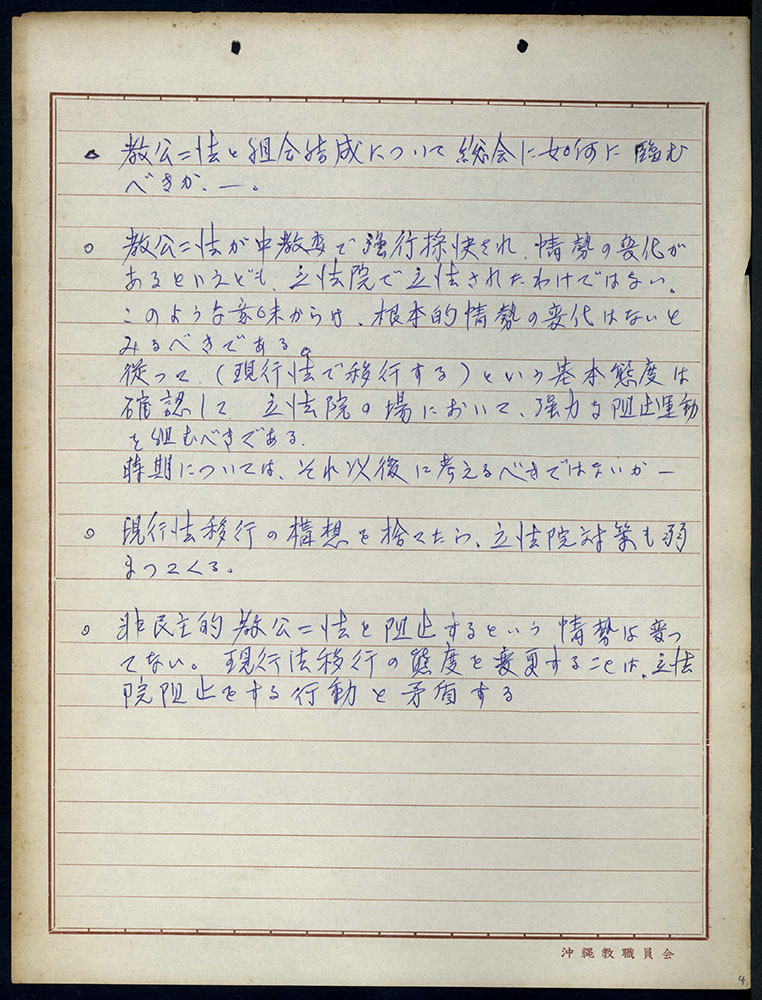 教公二法と組合結成について総会に如何に臨む
べきか、ー。
○ 教公二法が中教委で強行採決され、情勢の変化が
あるといえども、立法院で立法されたわけではない。
このような意味からは、根本的情勢の変化はないと
みるべきである。
従って、(現行法で移行する)という基本態度は
確認して 立法院の場において、強力な阻止運動
を組むべきである。
時期については、それ以後に考えるべきではないかー
○ 現行法移行の構想を捨てたら、立法院対策も弱
まってくる。
○ 非民主的教公二法を阻止するという情勢は変っ
てない。現行法移行の態度を変更することは、立法
院阻止をする行動と矛盾する
沖縄教職員会
4